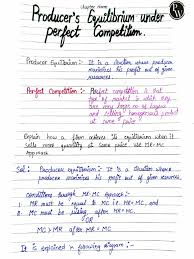 Chapter Name
Producer's Equilibrium under
perfect Competition.
Producer Equilibrium :- It is a situation where producer
maximises his profit out of given
resources
Perfect Competition :- Perfect competition is that
type of market in which very
very large no. of buyers
and sellers homogeneous product
at same price
Explain how a firm achieves its equilibrium when it
sells more quantity at same price. Use MR-MC
Approach
Sol : Producers equilibrium : It is a situation where
producer maximises his profit out of given resources
Conditions through MR-MC Approach :-
1. MR must be equal to MC i.e. MR = MC, and
2. MC must be rising after MR=MC.
OR
MC > MR after MR = MC
It is explained in following diagram :-